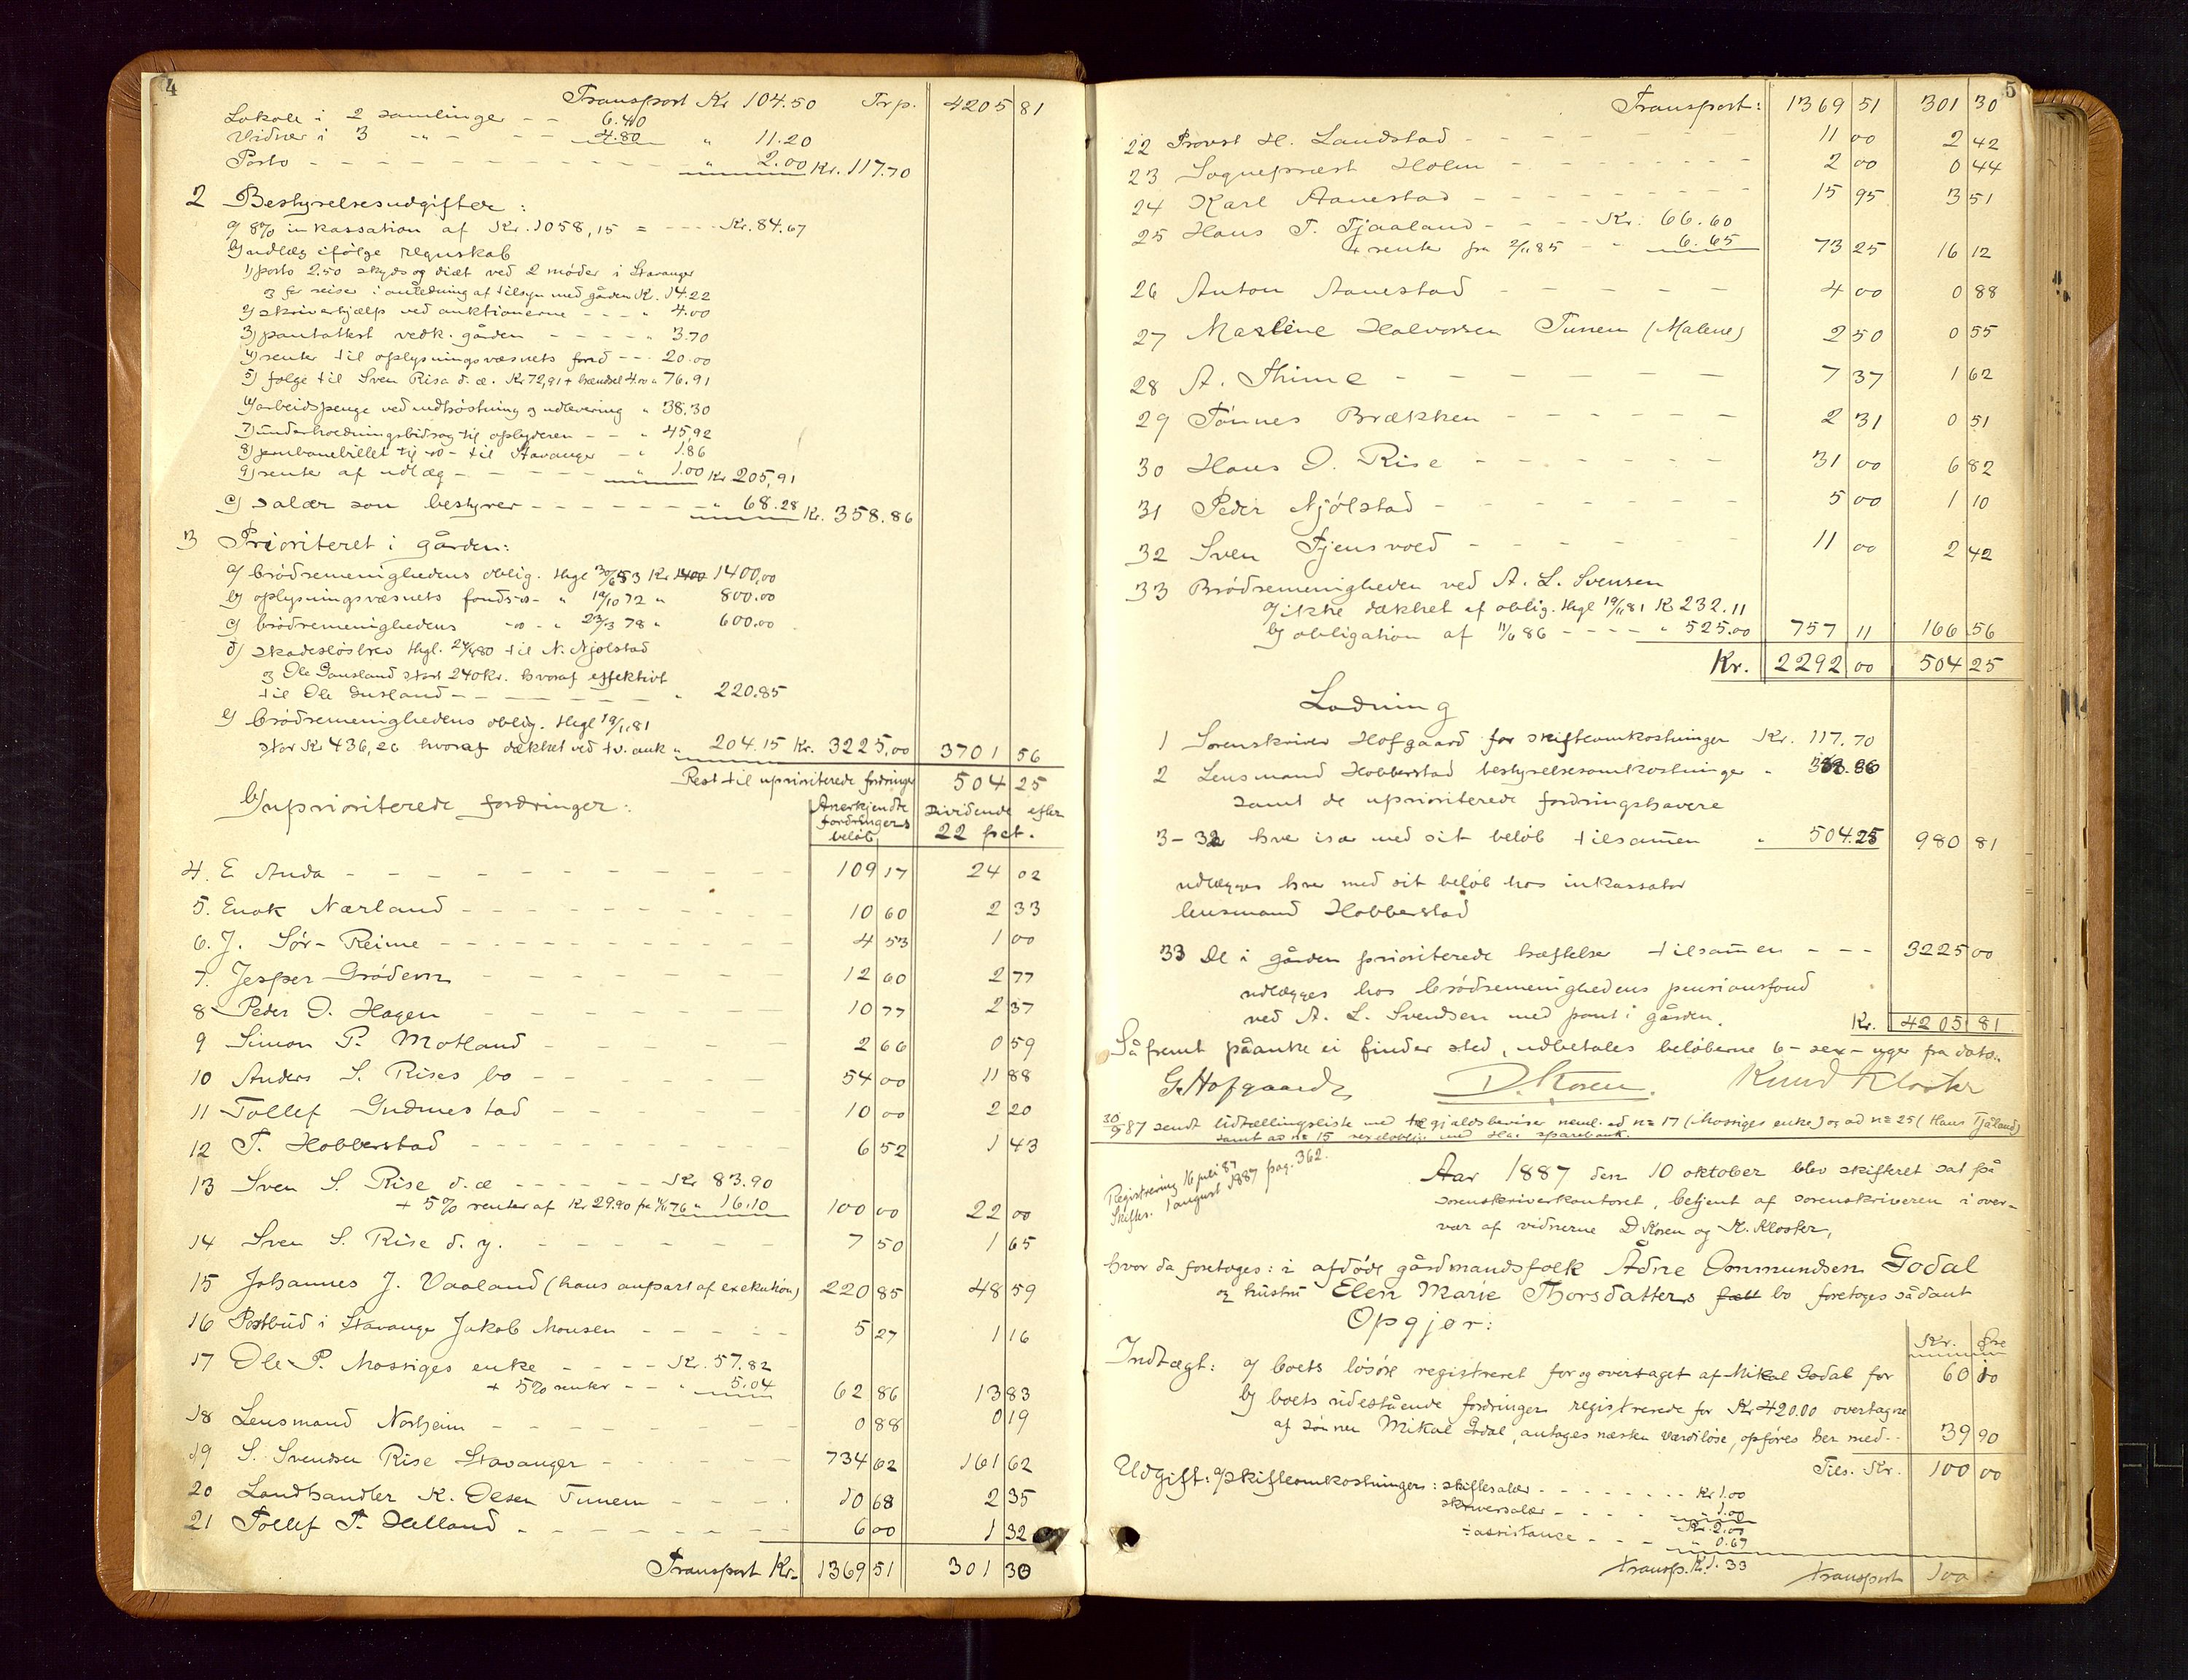 4
Transport Kr 104.50 Trp. 4205 81
Lokale i 2 samlinger - - 6.40
Vidner i 3 " - - - 4.80 " 11.20
Porto - - - - " 2.00 Kr. 117.70
2 Bestyrelsesudgifter:
a) 8% inkassation af Kr. 1058,15 = - - - - Kr. 84.67
b) udlæg ifölge regnskab
1) porto 2.50 skyds og diæt ved 2 möder i Stavanger
og for reiser i anledning af tilsyn med gården Kr. 14.22
2) skriverhjælp ved auktionerne - - - " 4.00
3) pantattest vedk. gården - - - - " 3.70
4) renter til oplysningsvæsnets fond - - - 20.00
5) følge til Sven Risa d.æ. Kr 72,91 + brændsel 4.00 " 76.91
6) arbeidspenge ved indhöstning og udlevering " 38.30
7) underholdningsbidrag til oplyderen - - " 45,92
8) jernbanebillet til -"- til Stavanger - " 1.86
9) renter af udlæg - - - - - " 1.00 Kr 205,91
c) salær som bestyrer - - - - - - " 68.28 Kr. 358.86
3 Prioriteret i gården:
a) brödremenighedens oblig. thgl 30/6 53 Kr 1400 1400,00
b) oplysningsvæsnets fonds -"- " 19/10 72 " 800.00
c) brödremenighedens -"- " 23/3 78 " 600.00
d) skadeslösbrev thgl. 24/4 80 til N. Njölstad
og Ole Dusland stort 240 kr. hvoraf effektivt
til Ole Dusland - - - - - - " 220.85
e) brödremenighedens oblig. thgl 19/11 81
stor Kr 436,26 hvoraf dækket ved tv. auk " 204.15 Kr. 3225,00 3701 56
Rest til uprioriterede fordringer 504 25
b) uprioriterede fordringer:
Anerkjendte fordringers beløb
Dividende efter 22 pct.
4. E Anda - - - - 109 17 24 02
5. Enok Nærland - - - - 10 60 2 33
6. J. Sör-Reime - - - - 4 53 1 00
7. Jesper Grödem - - - - 12 60 2 77
8 Peder O. Hagen - - - - 10 77 2 37
9 Simon P. Motland - - - - 2 66 0 59
10 Anders S. Rises bo - - - - 54 00 11 88
11 Tollef Gudmestad - - - - 10 00 2 20
12 T. Hobberstad - - - - 6 52 1 43
13 Sven S. Rise d.æ - - - - - Kr 83.90
+ 5% renter af Kr 29.90 fra 1/1 76 " 16.10 100 00 22 00
14 Sven S. Rise d. y. - - - - 7 50 1 65
15 Johannes J. Vaaland (hans anpart af exekution) 220 85 48 59
16 Postbud i Stavanger Jakob Monsen - - - - 5 27 1 16
17 Ole P. Mossiges enke - - - - Kr. 57.82
+ 5% renter - - " 5.04 62 86 13 83
18 Lensmand Norheim - - - - 0 88 0 19
19 S. Svendsen Rise Stavanger - - - - 734 62 161 62
20 Landhandler K. Olsen Tunem - - - - 10 68 2 35
21 Tollef T. Helland - - - - 6 00 1 32
Transport Kr. 1369 51 301 30
5
Transport: 1369 51 301 30
22 Provst H. Landstad - - - - 11 00 2 42
23 Sognepræst Holm - - - - 2 00 0 44
24 Karl Aanestad - - - - 15 95 3 51
25 Hans T. Tjaaland - - - - Kr. 66.60
+ renter fra 2/11 85 - - 6.65 73 25 16 12
26 Anton Aanestad - - - - 4 00 0 88
27 Marline Halvorsen Tunem (Malene) 2 50 0 55
28 A. Thime - - - - 7 37 1 62
29 Tönnes Brækken - - - - 2 31 0 51
30 Hans O. Rise - - - - 31 00 6 82
31 Peder Njölstad - - - - 5 00 1 10
32 Sven Tjensvold - - - - 11 00 2 42
33 Brödremenigheden ved A. L. Svensen
a) ikke dækket af oblig. thgl 19/11 81 Kr 232.11
b) obligation af 11/6 86 - - - - " 525.00 757 11 166 56
Kr. 2292 00 504 25
Lodning
1 Sorenskriver Hofgaard for skifteomkostninger Kr. 117.70
2 Lensmand Hobberstad bestyrelsesomkostninger " 358.86
samt de uprioriterede fordringshavere
3-32 hver især med sit beløb tilsammen " 504.25 980 81
udlægges hver med sit beløb hos inkassator
lensmand Hobberstad
33 De i gården prioriterede hæftelser tilsammen - - - 3225 00
udlægges hos brödremenighedens pensionsfond
ved A. L. Svendsen med pant i gården. Kr. 4205 81
Såfremt påanke ei finder sted, udbetales beløberne 6-sex-uger fra dato.
G. Hofgaard D. Koren. Knud Kloster
30/9 87 sendt Udtællingsliste med gjældsbeviser neml. ad no 17 (Mossiges enke) og ad no 25 (Hans Tjåland)
samt ad no 15
Registrering 16 juli 87
Skiftes. 1 august 1887 pag. 362.
Aar 1887 den 10 oktober blev skifteret sat på
sorenskriverkontoret, betjent af sorenskriveren i over-
vær af vidnerne D Koren og K. Kloster,
hvor da foretoges: i afdøde gårdmandsfolk Ådne Ommundsen Godal
og hustru Elen Marie Thorsdatters bo foretoges sådant
Opgjør:
Kr. Øre
Indtægt: a) boets løsöre registreret for og overtaget af Mikal Godal for 60 10
b) boets udestående fordringer registrerede for Kr 420.00 overtagne
af sønnen Mikal Godal, antages næsten værdiløse, opføres her med - - 39 90
Tils. Kr. 100 00
Udgift: a) skifteomkostninger: skiftesalær - - - - Kr 1.00
skriversalær - - - - " 1.00
Kr. 2.00
÷ assistance - - - " 0.67
Transp. Kr. 1.33 Transport 100 :